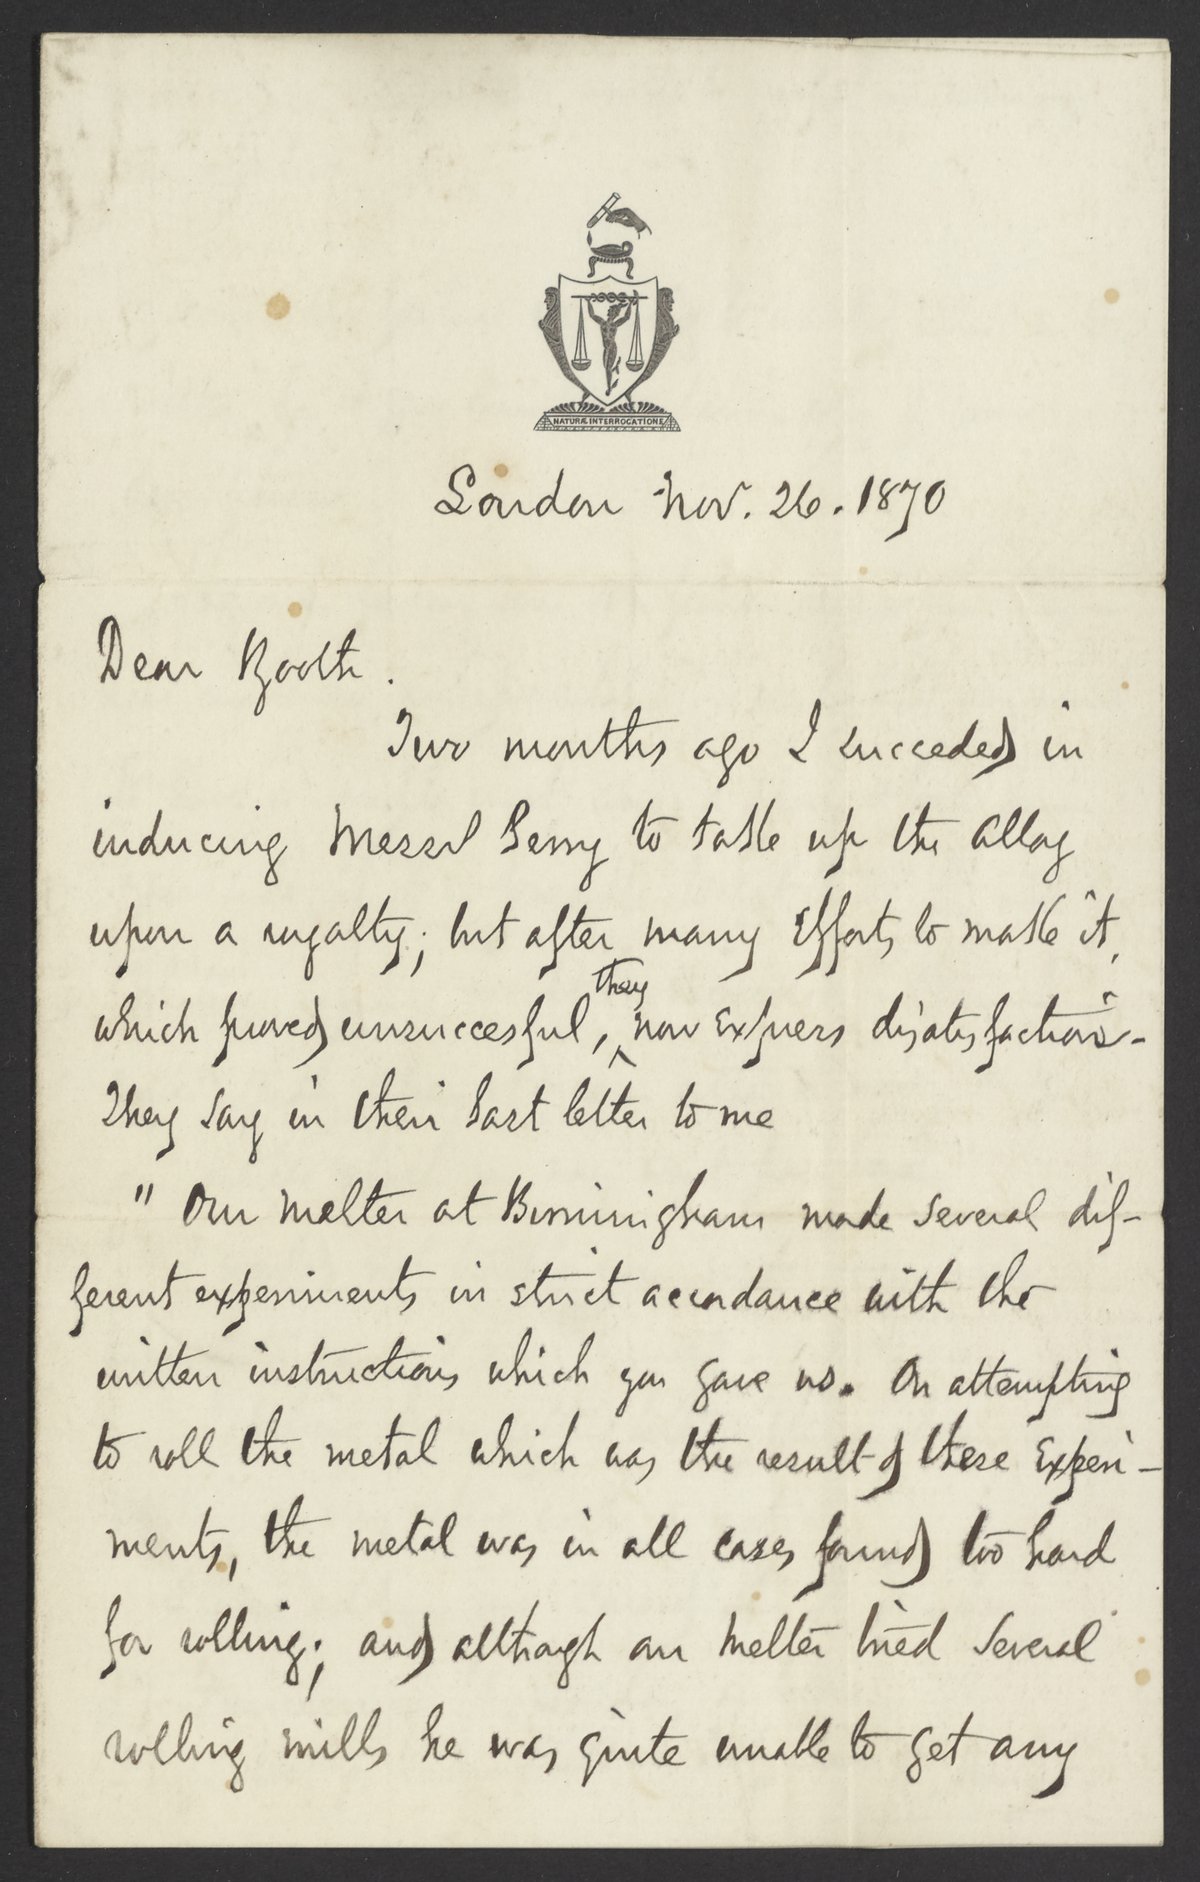 NATURÆ INTERROGATIONE
London Nov. 26. 1870
Dear Booth.
Two months ago I succeded in
inducing Messrs Perry to take up the Alloy
upon a royalty; but after many Efforts to make it,
which proved unsuccesful, they now Express disatisfaction -
They say in their last letter to me
" Our Melter at Birmingham made several dif-
ferent experiments in strict accordance with the
written instructions which you gave us. On attempting
to roll the metal which was the result of these Experi-
ments, the metal was in all cases found too hard
for rolling; and although our Melter tried several
rolling mills he was quite unable to get any